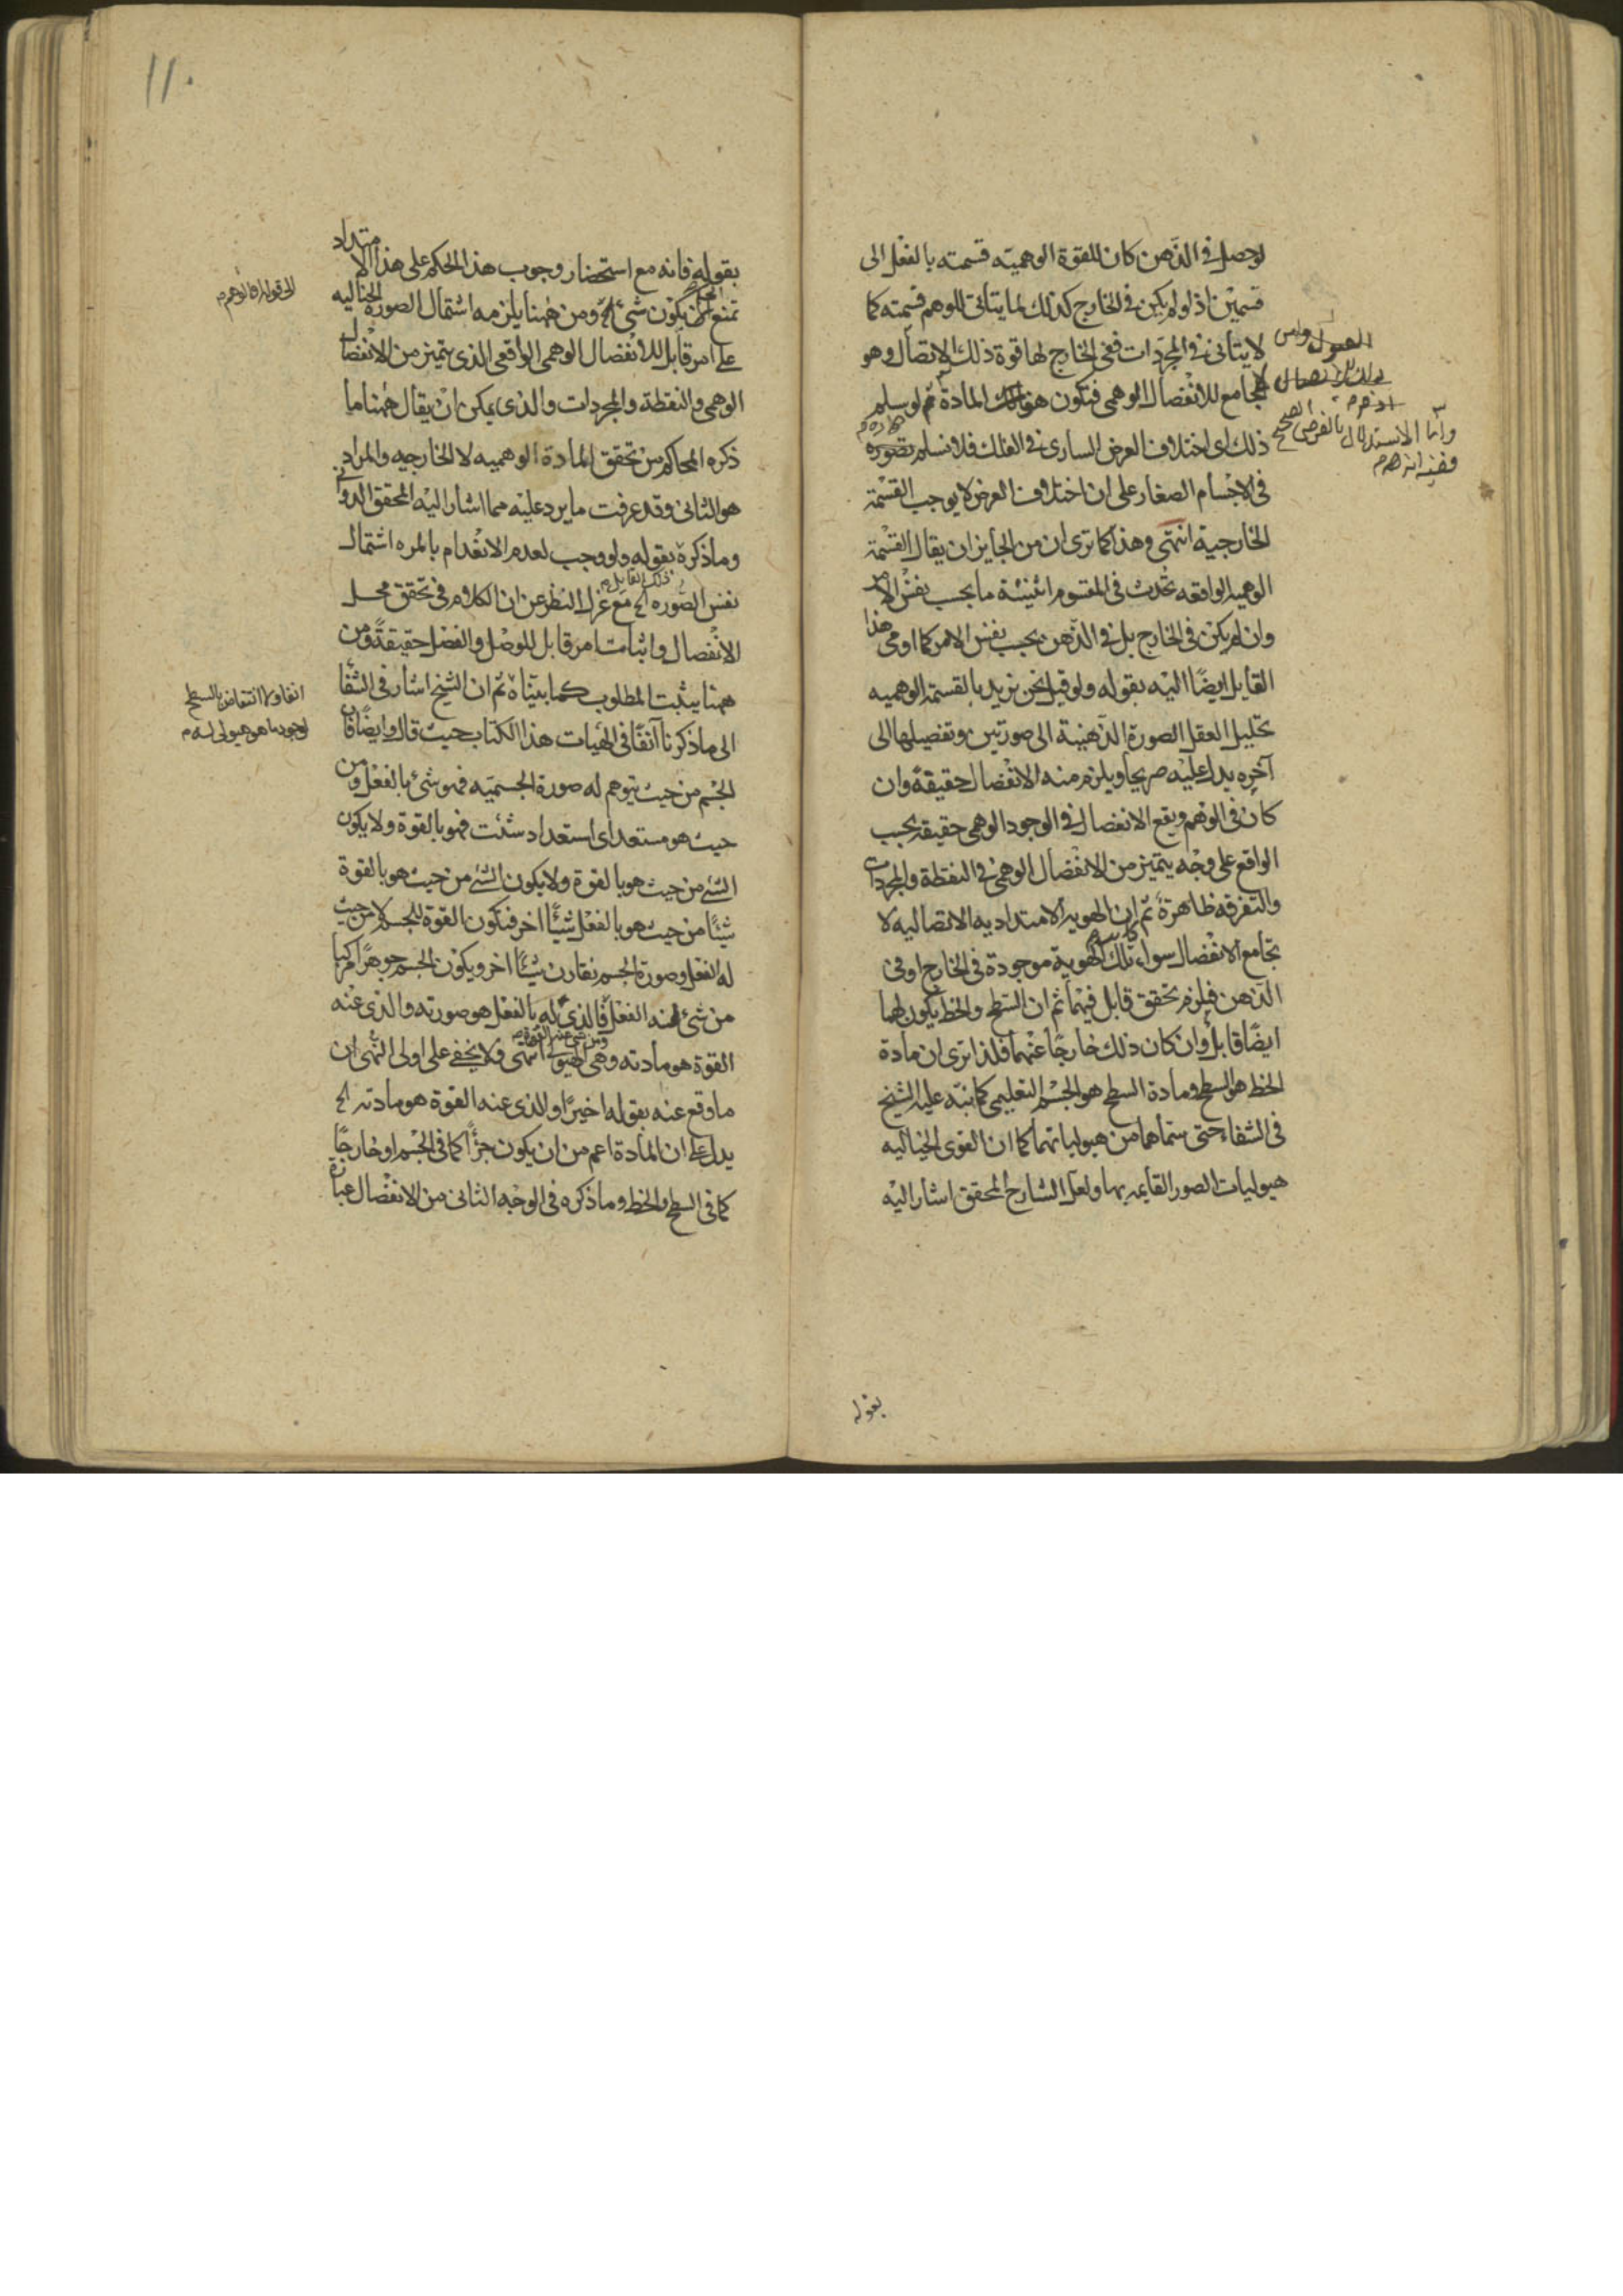 لو حصل فى الذهن كان للقوة الوهميه قسمته بالفعل الى
قسمين اذ لو لم يكن فى الخارج كذلك لما يتأتى للوهم قسمته كما
لا يتأتى فى المجردات ففى الخارج لها قوة ذلك الاتصال وهو
لا يجامع للانفصال الوهمى فتكون هناك المادة ثم لو سلم
ذلك اى اختلاف العرض السارى فى الفلك فلا نسلم تصوره
فى الاجسام الصغار على ان اختلاف العرض لا يوجب القسمة
الخارجية انتهى وهذا كما ترى ان من الجايز ان يقال القسمة
الوهميه الواقعه تحدث فى المقسوم اثنينية ما بحسب نفس الامر
وان لم يكن فى الخارج بل فى الذهن بحسب نفس الامر كما اومى هذا
القايل ايضًا اليه بقوله ولو قيل نحن نريد بالقسمة الوهميه
تحليل العقل الصورة الذهنية الى صورتين وتفصيلها الى
آخره يدل عليه صريحا ويلزم منه الانفصال حقيقة وان
كان فى الوهم ويقع الانفصال فى الوجود الوهمى حقيقة بحسب
الواقع على وجه يتميز من الانفصال الوهمى فى النقطة والمجردات
والتفرقه ظاهرة ثم ان الهوية الامتداديه الاتصاليه لا
تجامع الانفصال سواء كانت تلك الهوية موجودة فى الخارج او فى
الذهن فيلزم تحقق قابل فيهما ثم ان السطح والخط يكون لهما
ايضًا قابل وان كان ذلك خارجًا عنهما فلذا ترى ان مادة
الخط هو السطح ومادة السطح هو الجسم التعليمى كما نبه عليه الشيخ
فى الشفاء حتى سماهما من هيولياتهما كما ان القوى الخياليه
هيوليات الصور القايمه بها ولعل الشارح المحقق اشار اليه
وأما الاستدلال بالفرض الصحيح
ففيه انه
بقوله
١١٠
بقوله فانه مع استحضار وجوب هذا الحكم على هذا الامتداد
تمتنع ان يكون شئ الخ ومن هٰهنا يلزمه اشتمال الصورة الخياليه
على امر قابل للانفصال الوهمى الواقعى الذى يتميز من الانفصال
الوهمى والنقطة والمجردات والذى يمكن ان يقال هٰهنا ما
ذكره المحاكم من تحقق المادة الوهميه لا الخارجيه والمراد
هو الثانى وقد عرفت ما يرد عليه مما اشار اليه المحقق الدوانى
وما ذكره بقوله ولو وجب لعدم الانعدام بالمره اشتمال
نفس الصوره الخ مع عزل النظر عن ان الكلام فى تحقق محل
ذلك القابل
الانفصال واثبات امر قابل للوصل والفصل حقيقةً ومن
ههنا يثبت المطلوب كما بيناه ثم ان الشيخ اشار فى الشفا
الى ما ذكرنا آنفًا فى الهيات هذا الكتاب حيث قال وايضًا فان
الجسم من حيث يتوهم له صورة الجسميه فهو شئ بالفعل ومن
حيث هو مستعد اى استعداد شئت فهو بالقوة ولا يكون
الشئ من حيث هو بالقوة ولا يكون الشئ من حيث هو بالقوة
شيئًا من حيث هو بالفعل شيئًا اخر فتكون القوة للجسم لا من حيث
له الفعل وصورة الجسم تقارن شيئًا اخر ويكون الجسم جوهرًا مركبا
من شئ عنه الفعل فالذى له بالفعل هو صورته والذى عنه
ومن شئ عنه القوة
القوة هو مادته وهى الهيولى انتهى فلا يخفى على اولى النهى ان
ما وقع عنه بقوله اخيرًا والذى عنه القوة هو مادته الخ
يدل على ان المادة اعم من ان يكون جزأً كما فى الجسم او خارجًا
كما فى السطح والخط وما ذكره فى الوجه الثانى من الانفصال عبارة